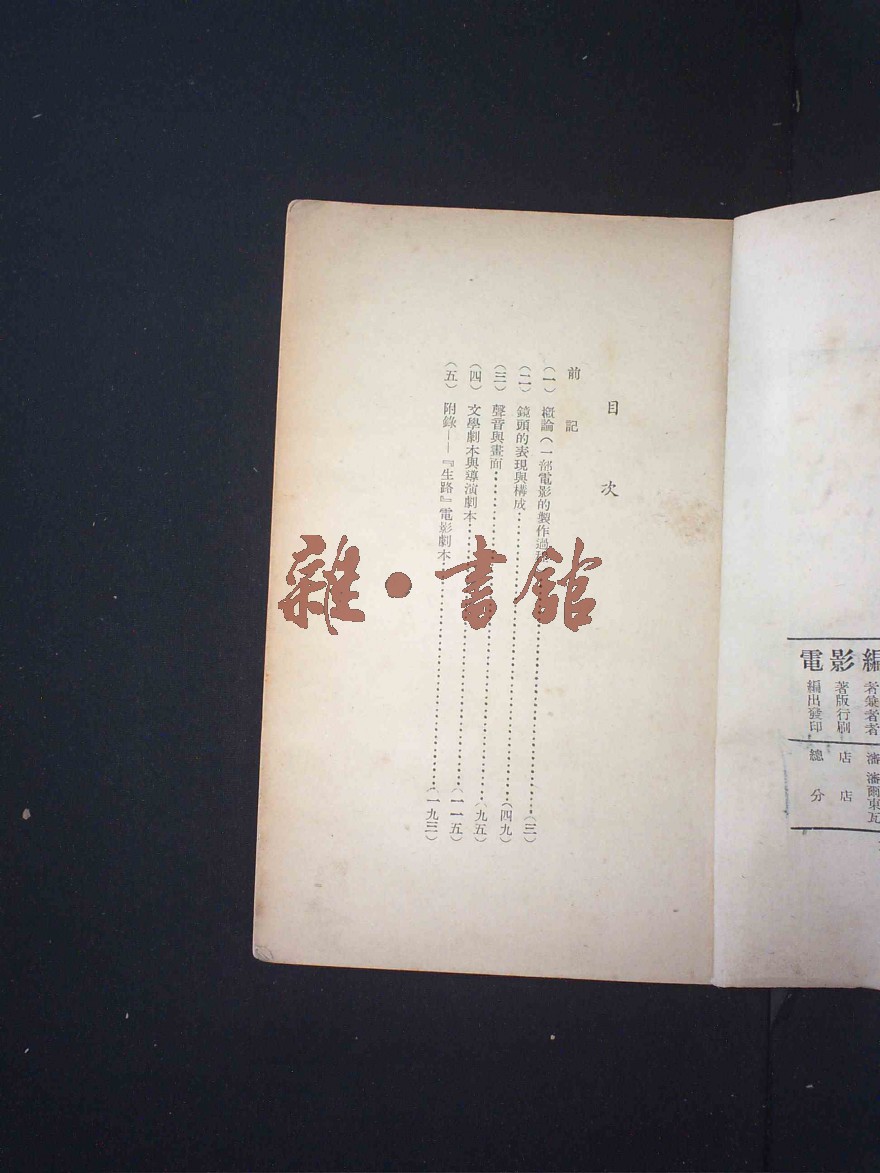 目次
前記
(一) 概論(一部電影的製作過程)……(三)
(二) 鏡頭的表現與構成……(四九)
(三) 聲音與畫面……(九五)
(四) 文學劇本與導演劇本……(一一五)
(五) 附錄——『生路』電影劇本……(一九三)
雜·書館
電影編
編著者
出版兼
發行者
印刷者
總店 瀋
分店 瀋爾東瓦